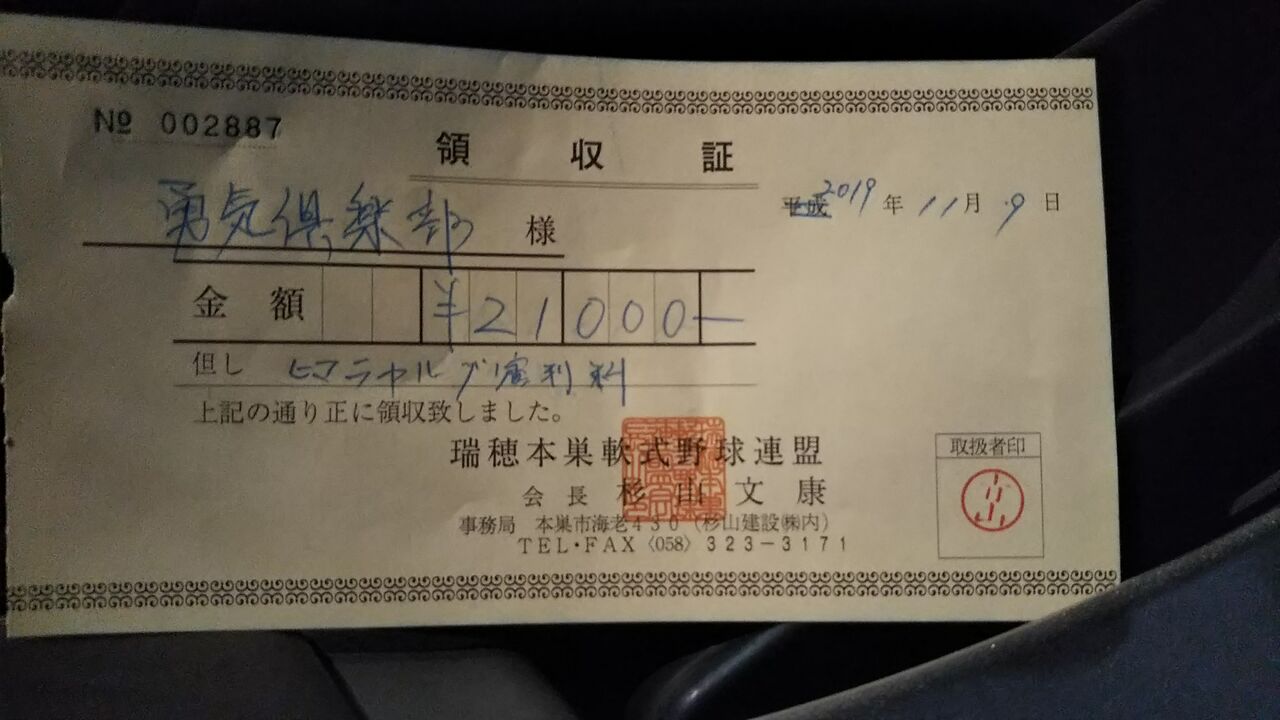 No 002887
領収証
平成 2019年11月9日
勇気倶楽部 様
金額 ¥21000-
但し ヒマラヤルブ審判料
上記の通り正に領収致しました。
瑞穂本巣軟式野球連盟
会長 杉山文康
事務局 本巣市海老430(杉山建設㈱内)
TEL・FAX〈058〉323-3171
取扱者印